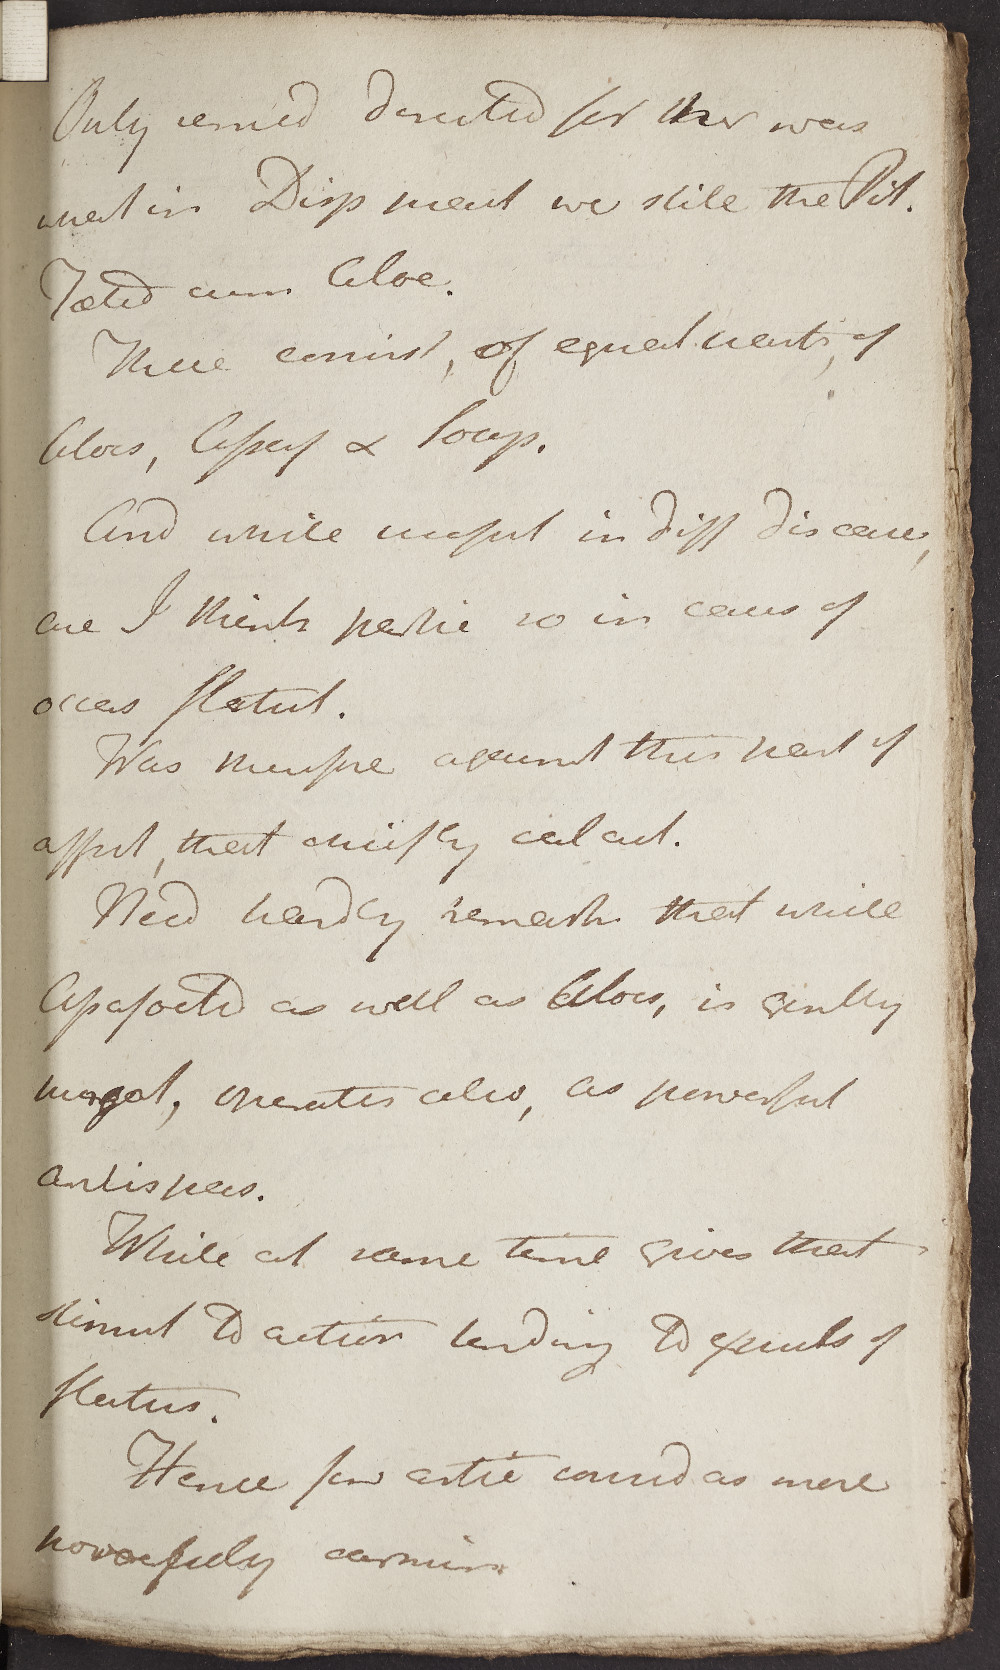 Only remed directed for her was
what in Disp meat we stile the Pil.
Fœtid cum Aloe.
These consist, of equal parts, of
Aloes, Assaf & Soap.
And while useful in diff diseases,
are I think partic so in cases of
occas flatul.
Was therefore against this part of
affect, that chiefly calcul.
Need hardly remark that while
Assafoetid as well as Aloes, is gently
purgat, operates also, as powerful
antispas.
While at same time gives that
stimul to action tending to expuls of
flatus.
Hence few artic consid as more
powerfully carmin